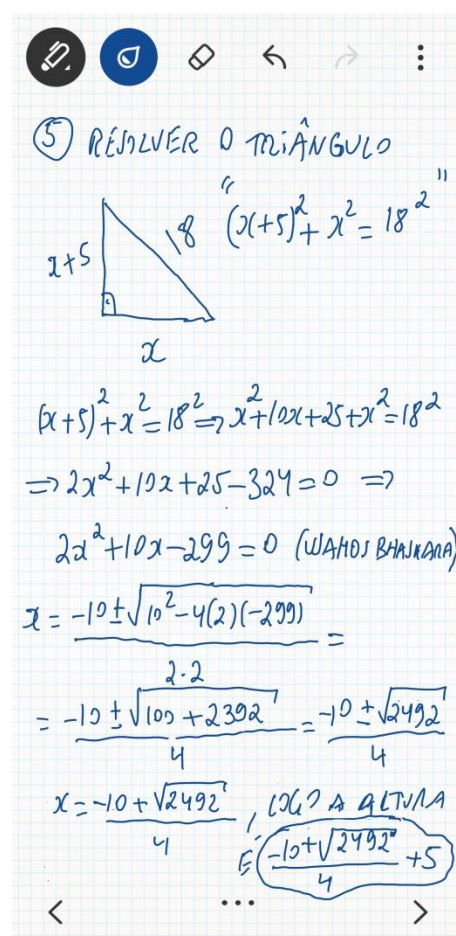 ⑤ RESOLVER O TRIÂNGULO
"(x+5)²+x²=18²"
18
x+5
x
(x+5)²+x²=18²⇒x²+10x+25+x²=18²
⇒2x²+10x+25-324=0 ⇒
2x²+10x-299=0 (USAMOS BHASKARA)
x = -10±√(10²-4(2)(-299)) / 2·2 =
= -10±√(100+2392) / 4 = -10±√2492 / 4
x = -10+√2492 / 4, LOGO A ALTURA
É -10+√2492 / 4 +5